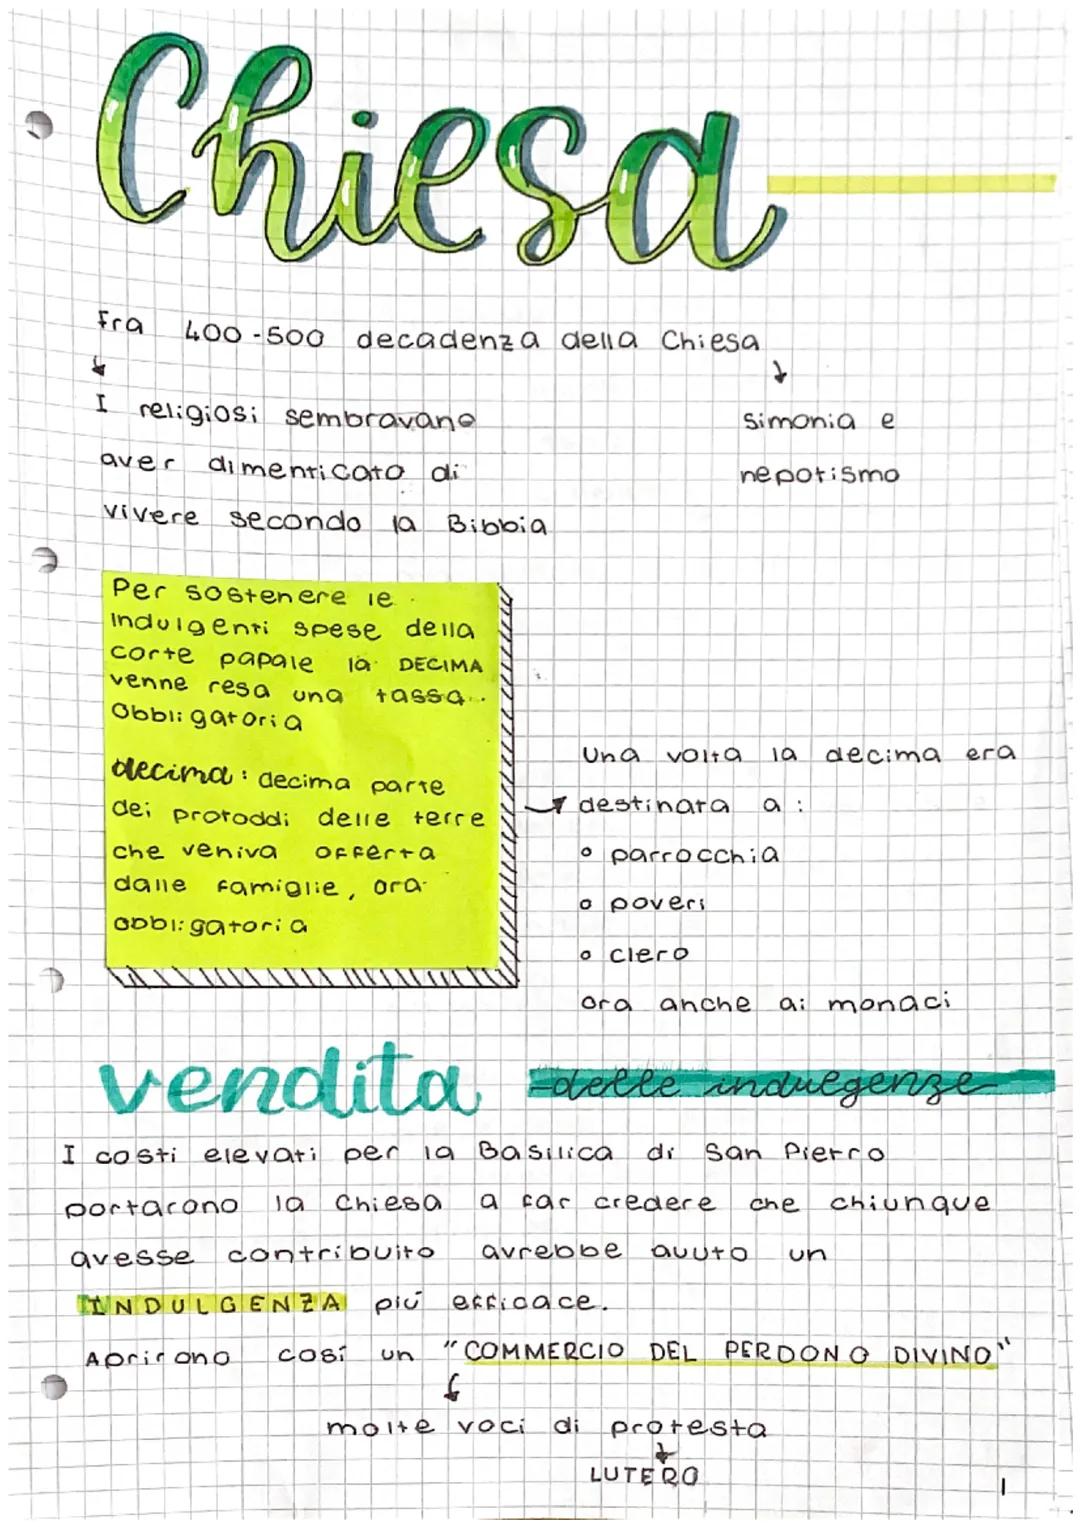 Chiesa
Fra 400-500 decadenza della Chiesa
I religiosi sembravano
aver dimenticato di
vivere secondo la Bibbia
simonia e
nepotismo
Per sostenere le
indulgenti spese della
corte papale la DECIMA
venne resa una tassa
obbligatoria
decima: decima parte
dei protoddi delle terre
che veniva offerta
dalle famiglie, ora
obbligatoria
Una volta la decima era
destinata a:
parrocchia
poveri
clero
ora anche ai monaci
vendita delle indulgenze
I costi elevati per la Basilica di San Pietro
portarono la Chiesa a far credere che chiunque
avesse contribuito avrebbe avuto un
INDULGENZA più efficace.
Aprirono così un "COMMERCIO DEL PERDONO DIVINO"
molte voci di protesta
LUTERO
1